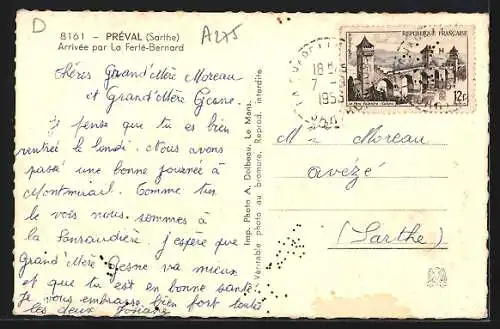 D
8161 - PRÉVAL (Sarthe)
Arrivée par La Ferté-Bernard
A275
Chères Grand'Mère Moreau
et Grand'Mère Gesne.
Je pense que tu es bien
rentrée le lundi. Nous avons
passé une bonne journée à
Montmirail. Comme tu
le vois nous sommes à
la Sansaudière. J'espère que
Grand'Mère Gesne va mieux
et que tu est en bonne santé.
Je vous embrasse bien fort toutes
les deux Josiane
Imp. Photo A. Dolbeau, Le Mans.
Véritable photo au bromure. Reprod. interdite
RÉPUBLIQUE FRANÇAISE
12F
18
7 -
195
Moreau
avézé
(Sarthe)